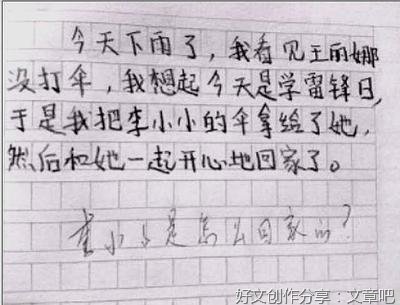 今天下雨了，我看见王丽娜
没打伞，我想起今天是学雷锋日，
于是我把李小小的伞拿给了她，
然后和她一起开心地回家了。
李小小是怎么回家的？
好文创作分享：文章吧